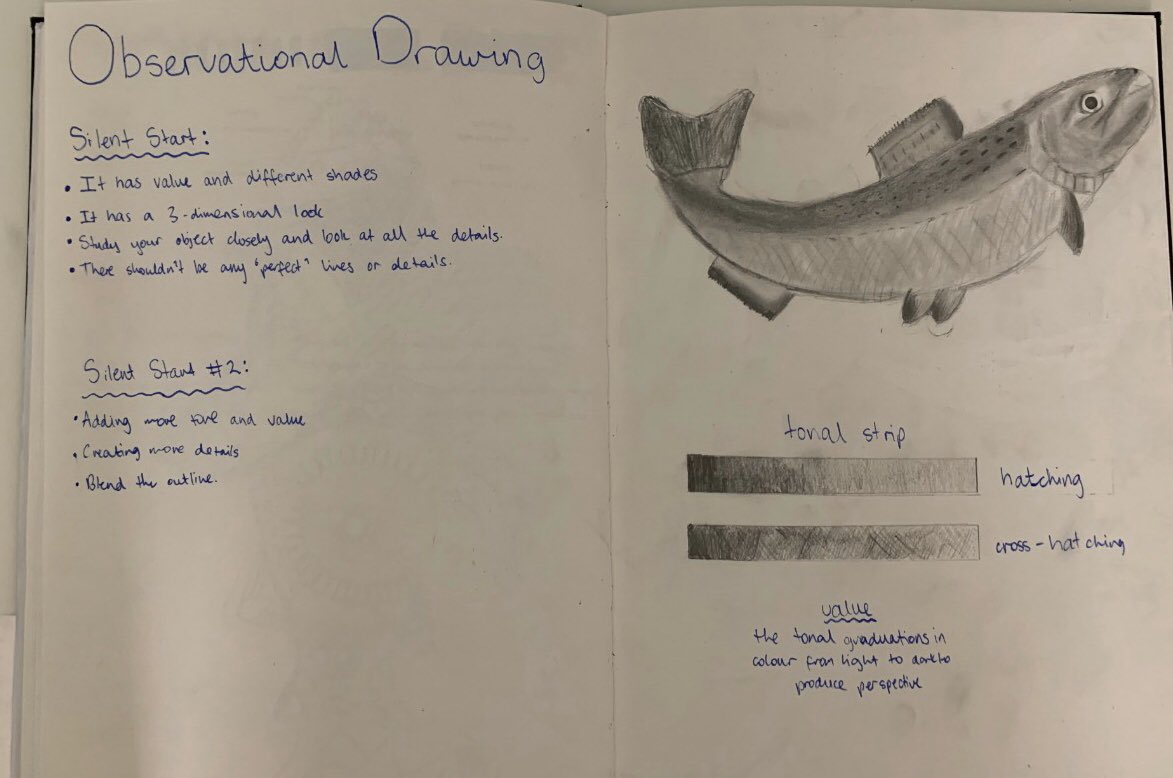 Observational Drawing
Silent Start:
• It has value and different shades
• It has a 3-dimensional look
• Study your object closely and look at all the details.
• There shouldn't be any "perfect" lines or details.
Silent Start #2:
• Adding more tone and value
• Creating more details
• Blend the outline.
tonal strip
hatching
cross-hatching
value
the tonal graduations in
colour from light to dark to
produce perspective